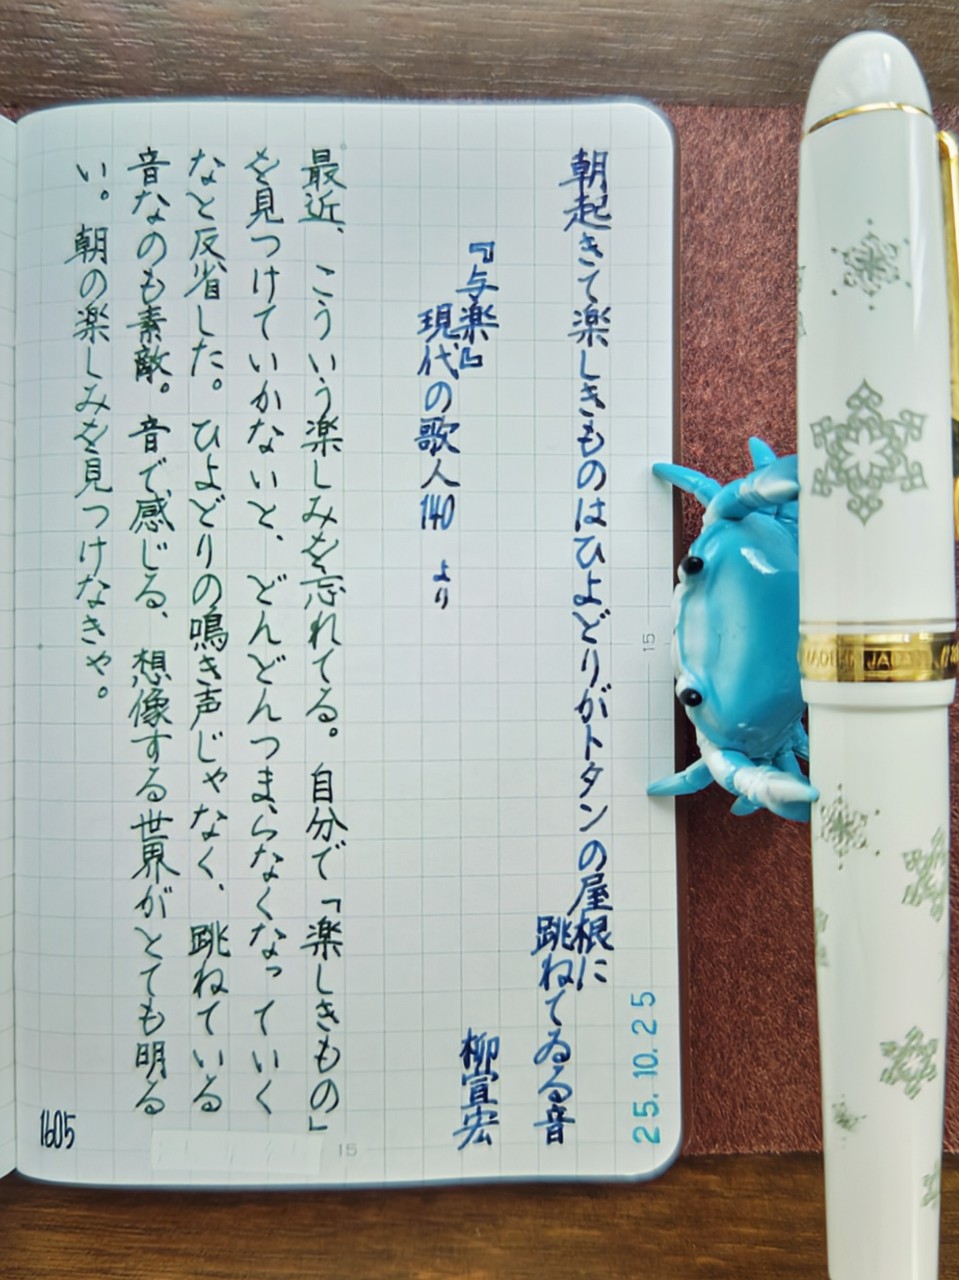 25.10.25
朝起きて楽しきものはひよどりがトタンの屋根に
跳ねてゐる音
柳宣宏
『与楽』
現代の歌人140 より
最近、こういう楽しみを忘れてる。自分で「楽しきもの」
を見つけていかないと、どんどんつまらなくなっていく
なと反省した。ひよどりの鳴き声じゃなく、跳ねている
音なのも素敵。音で感じる、想像する世界がとても明る
い。朝の楽しみを見つけなきゃ。
1605
15
15